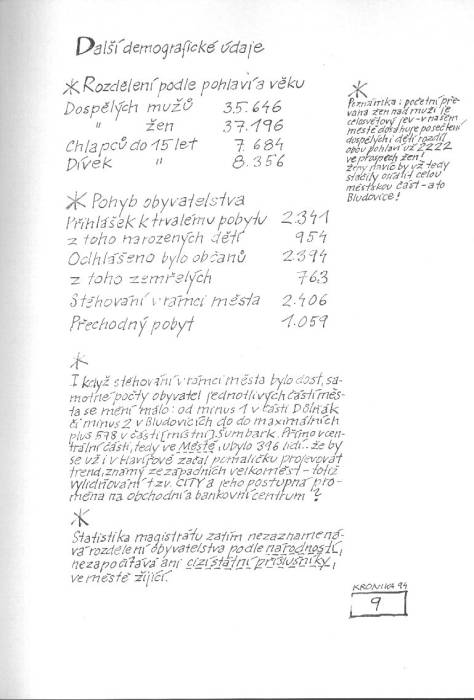 Další demografické údaje
* Rozdělení podle pohlaví a věku
Dospělých mužů 35.646
" žen 37.196
Chlapců do 15 let 7.684
Dívek " 8.356
*
Poznámka: početní pře-
vaha žen nad muži je
celosvětový jev - v našem
městě dosahuje po sečtení
dospělých i dětí rozdíl
obou pohlaví už 2222
ve prospěch žen!
Ženy navíc by už tedy
stačily osídlit celou
městskou část - a to
Bludovice!
* Pohyb obyvatelstva
Přihlášek k trvalému pobytu 2.341
z toho narozených dětí 954
Odhlášeno bylo občanů 2394
z toho zemřelých 763
Stěhování v rámci města 2.406
Přechodný pobyt 1.059
*
I když stěhování v rámci města bylo dost, sa-
motné počty obyvatel jednotlivých částí měs-
ta se mění málo: od minus 1 v části Dolňák
či minus 2 v Bludovicích do do maximálních
plus 578 v části [místní] Šumbark. Přímo v cen-
trální části, tedy ve Městě, ubylo 316 lidí. že by
se už i v Havířově začal pomaličku projevovat
trend, známý ze západních velkoměst - totiž
vylidňování tzv. CITY a jeho postupná pro-
měna na obchodní a bankovní centrum?
*
Statistika magistrátu zatím nezaznamená-
vá rozdělení obyvatelstva podle národností,
nezapočítává ani cizí státní příslušníky,
ve městě žijící.
KRONIKA 94
9